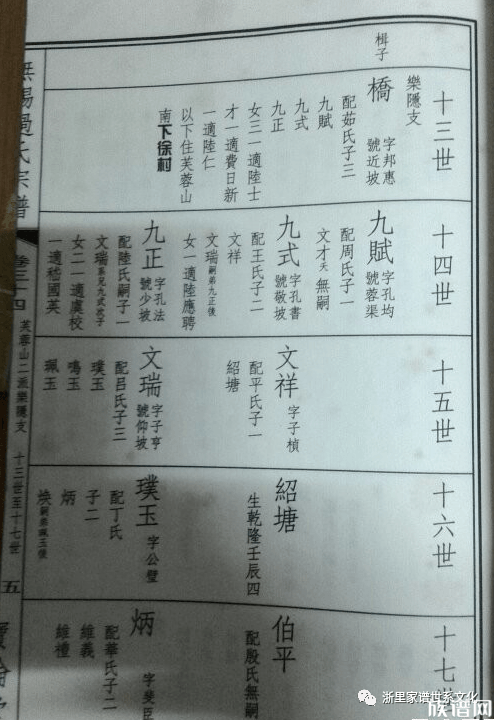 十三世
樂隱支
楫子
橋
字邦惠
號近坡
配茹氏子三
九賦
九式
九正
女三一適陸士
才一適費日新
一適陸仁
以下住芙蓉山
南下徐村
十四世
九賦
字孔均
號蓉渠
配周氏子一
文才夭無嗣
九式
字孔書
號敬坡
配王氏子二
文祥
文瑞嗣弟九正後
女一適陸應聘
九正
字孔法
號少坡
配陸氏嗣子一
文瑞系兄九式次子
女二一適虞校
一適嵇國英
十五世
文祥
字子楨
配平氏子一
紹塘
文瑞
字子亨
號仰坡
配呂氏子三
璞玉
鳴玉
珮玉
十六世
紹塘
生乾隆壬辰四
璞玉
字公璧
配丁氏
子二
炳
煥嗣弟珮玉後
十七
伯平
配殷氏無嗣
炳
字斐臣
配華氏子二
維義
維禮
無錫過氏宗譜
卷三十四
芙蓉山二派樂隱支
十三世至十七世
五
浙里家谱世系文化
族谱网